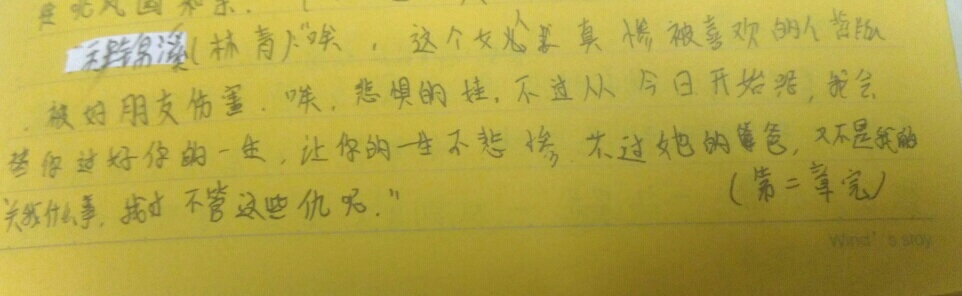 林青)："唉，这个女人真惨被喜欢的人背叛
被好朋友伤害．唉，悲惧的娃，不过从今日开始，我会
替你过好你的一生，让你的一生不悲惨．不过她的，又不是我的
关我什么事，我才不管这些仇呢．"
(第二章完)
Wind's stay